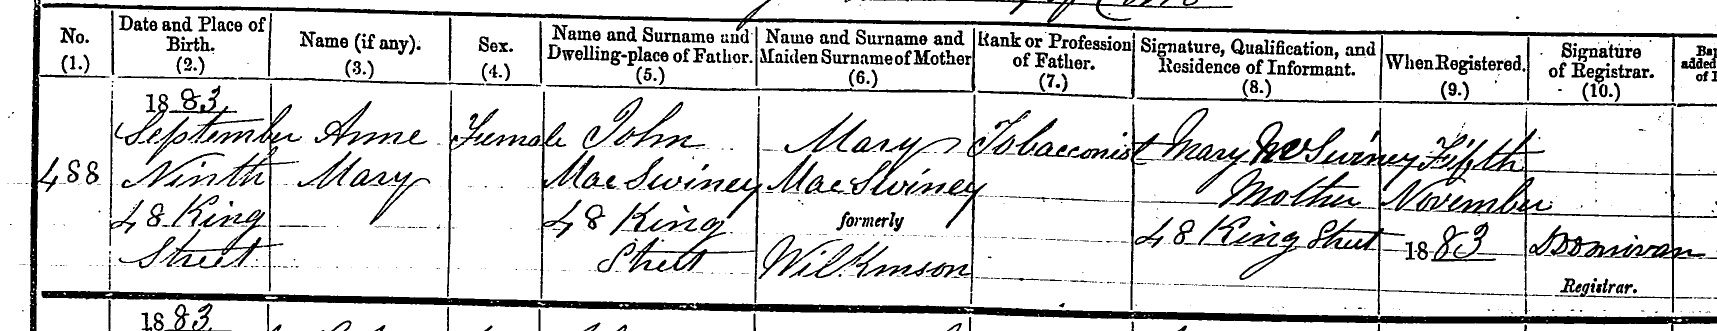 No.
(1.)
Date and Place of
Birth.
(2.)
Name (if any).
(3.)
Sex.
(4.)
Name and Surname and
Dwelling-place of Father.
(5.)
Name and Surname and
Maiden Surname of Mother
(6.)
Rank or Profession
of Father.
(7.)
Signature, Qualification, and
Residence of Informant.
(8.)
When Registered.
(9.)
Signature
of Registrar.
(10.)
488
1883
September
Ninth
48 King
Street
Anne
Mary
Female
John
MacSwiney
48 King
Street
Mary
MacSwiney
formerly
Wilkinson
Tobacconist
Mary McSwiney
Mother
48 King Street
Fifth
November
1883
Donovan
Registrar.
1883